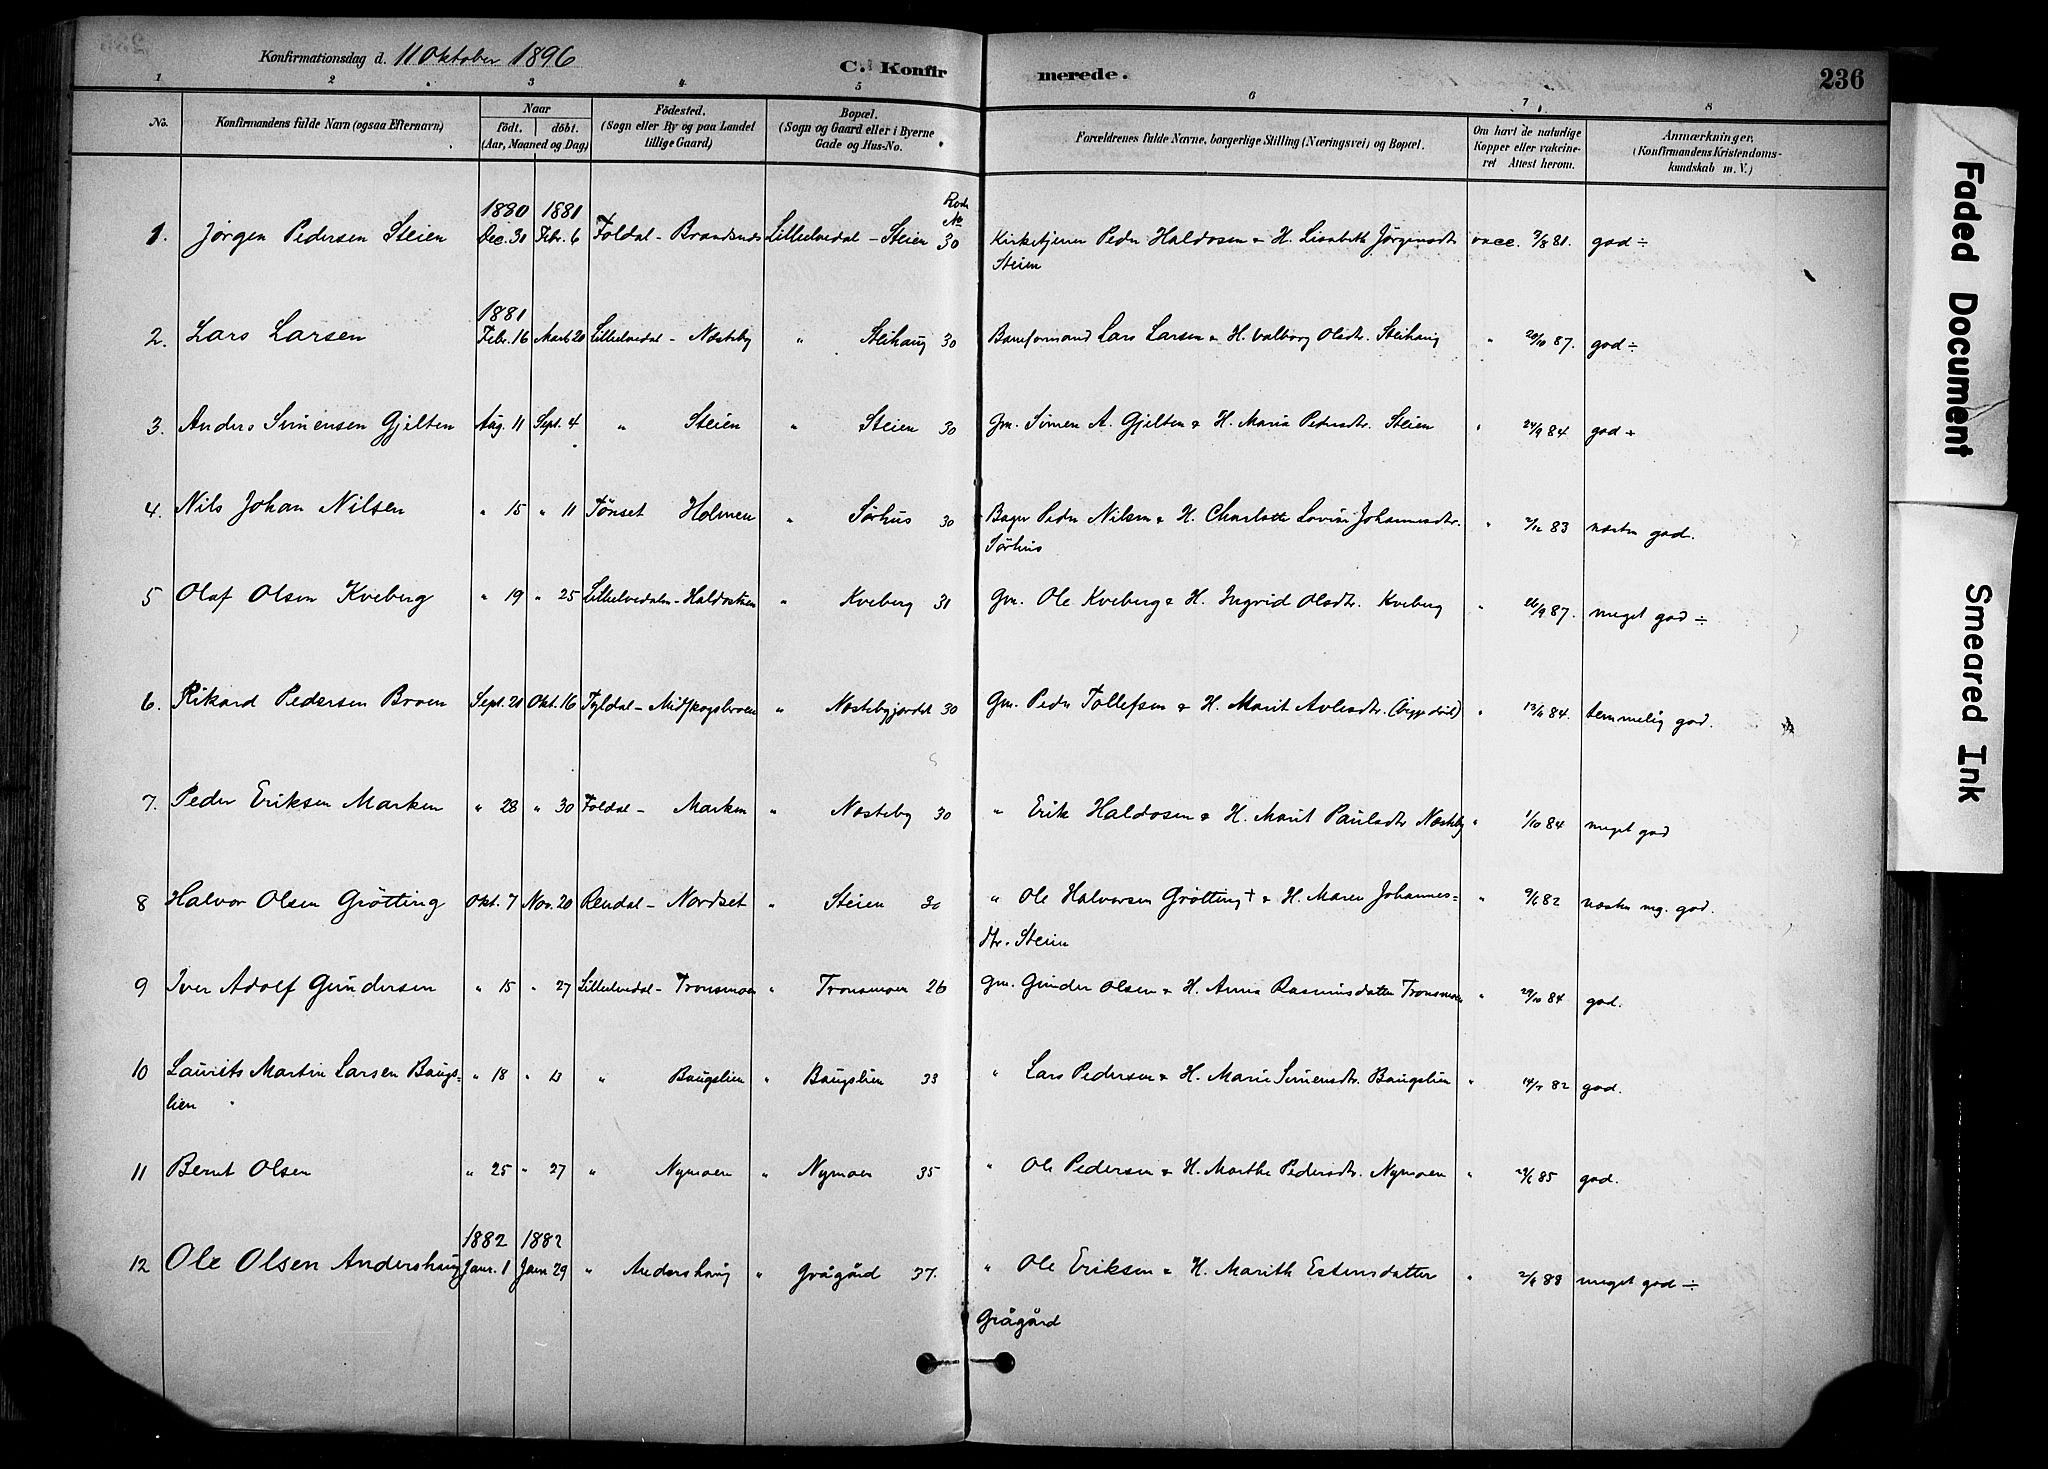 Konfirmationsdag d. 11 Oktober 1896
C. Konfirmerede.
236
1 2 3 4 5 6 7 8
No.
Konfirmandens fulde Navn (ogsaa Efternavn)
Naar
födt. döbt.
(Aar, Maaned og Dag)
Födested.
(Sogn eller By og paa Landet
tillige Gaard)
Bopæl.
(Sogn og Gaard eller i Byerne
Gade og Hus-No.
Forældrenes fulde Navne, borgerlige Stilling (Næringsvei) og Bopæl.
Om havt de naturlige
Kopper eller vakcine-
ret Attest herom.
Anmærkninger,
(Konfirmandens Kristendoms-
kundskab m. V.)
1880 1881 Rode No
1. Jørgen Pedersen Steien Dec. 31 Febr. 6 Foldal - Lilleelvedal - Steien 30 Kirketjener Peder Haldosen & H. Lisabeth Jørgensdtr vacc. 81. god ÷
Steien
1881
2. Lars Larsen Febr. 16 Marts 20 Lilleelvedal - Næsteby " Steihaug 30 Baneformand Lars Larsen & H. Valborg Olsdtr. Steihaug " 20/10 87. god ÷
3. Anders Simensen Gjelten Aug. 11 Sept. 4 " Steien " Steien 30 Gm. Simen A. Gjelten & H. Maria Pedersdtr. Steien " 24/9 84 god +
4. Nils Johan Nilsen " 15 " 11 Tönset Holmen " Sörhus 30 Bager Peder Nilsen & H. Charlotte Lovise Johannesdtr. " 83 næsten god.
Sörhus
5 Olaf Olsen Kveberg " 19 " 25 Lilleelvedalen - Haldosteien " Kveberg 31 Gm. Ole Kveberg & H. Ingrid Olsdtr. Kveberg " 26/9 87. meget god ÷
6. Rikard Pedersen Broen Sept. 21 Okt. 16 Tyldal - Midskogsbroen " Næstebyjordet 30 Gm. Peder Tollefsen & H. Marit " 84. temmelig god.
7. Peder Eriksen Marken " 28 " 30 Foldal - Marken " Næsteby 30 " Erik Haldosen & H. Marit Paulsdtr Næsteby " 1/10 84 meget god
8 Halvor Olsen Grötting Okt. 7 Nov. 20 Rendal - Nordset " Steien 30 " Ole Halvorsen Grötting † & H. Maren Johannes=
dtr. Steien " 9/6 82 næsten mg. god.
9 Iver Adolf Gundersen " 15 " 27 Lilleelvedal - Tronsmoen " Tronsmoen 26 Gm. Gunder Olsen & H. Anna Rasmusdatter Tronsmoen " 29/10 84 god.
10 Laurits Martin Larsen Baugs= " 18 " " Baugslien " Baugslien 33 " Lars Pedersen & H. Marie Simensdtr. Baugslien " 14/7 82 god.
lien
11 Bernt Olsen " 25 " 27 " Nymoen " Nymoen 35 " Ole Pedersen & H. Marthe Pedersdtr. Nymoen " 85 god.
1882 1882
12 Ole Olsen Andershaug Janr. 1 Janr 29 " Andershaug " Grågård 37. " Ole Eriksen & H. Marith Estensdatter " 88 meget god ÷
Grågård
Faded Document
Smeared Ink